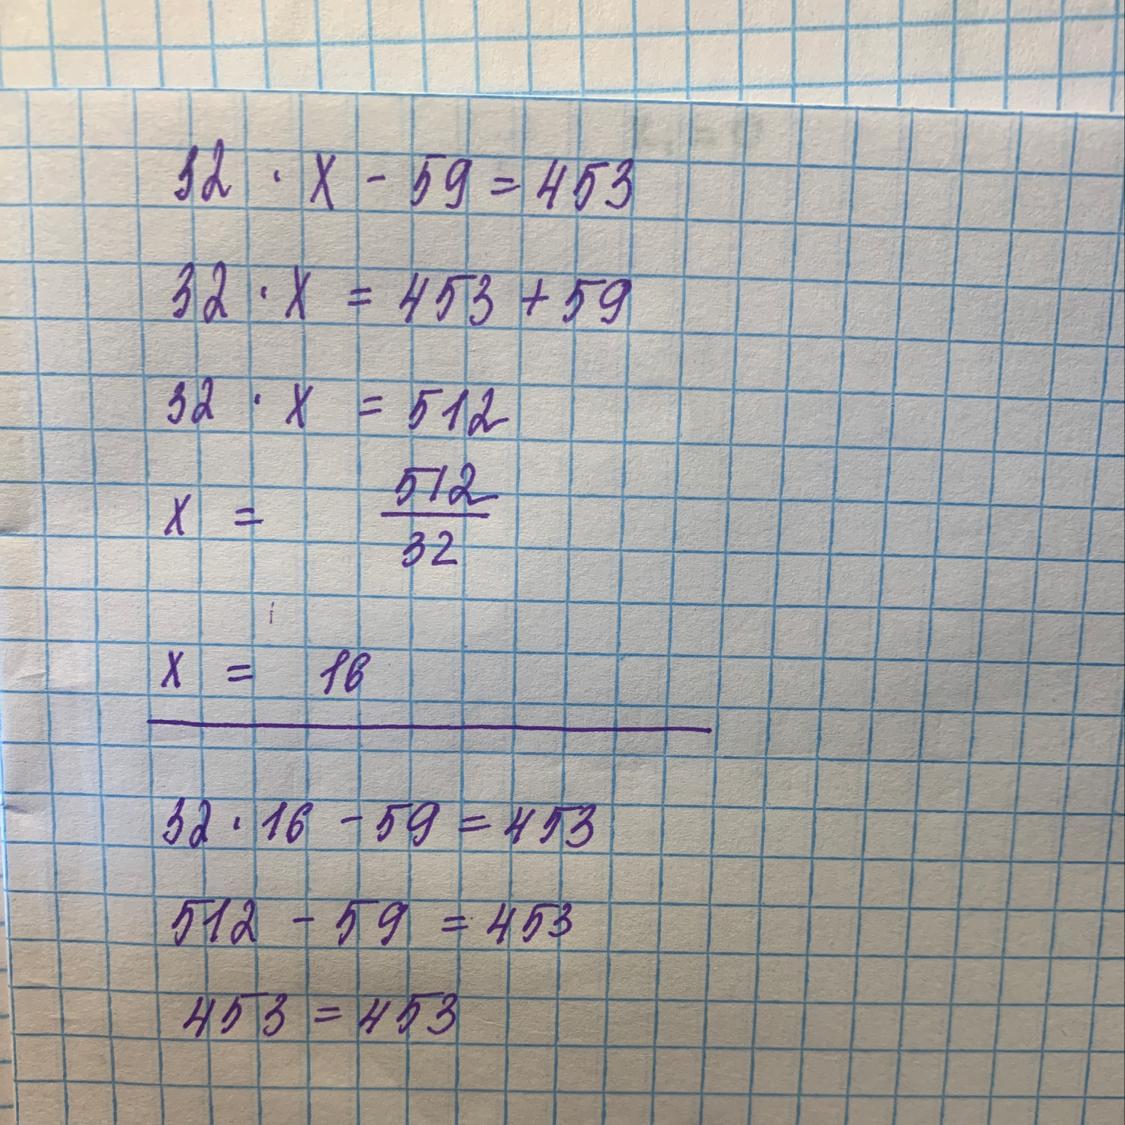 32 · x - 59 = 453
32 · x = 453 + 59
32 · x = 512
x = 512/32
x = 16
32 · 16 - 59 = 453
512 - 59 = 453
453 = 453